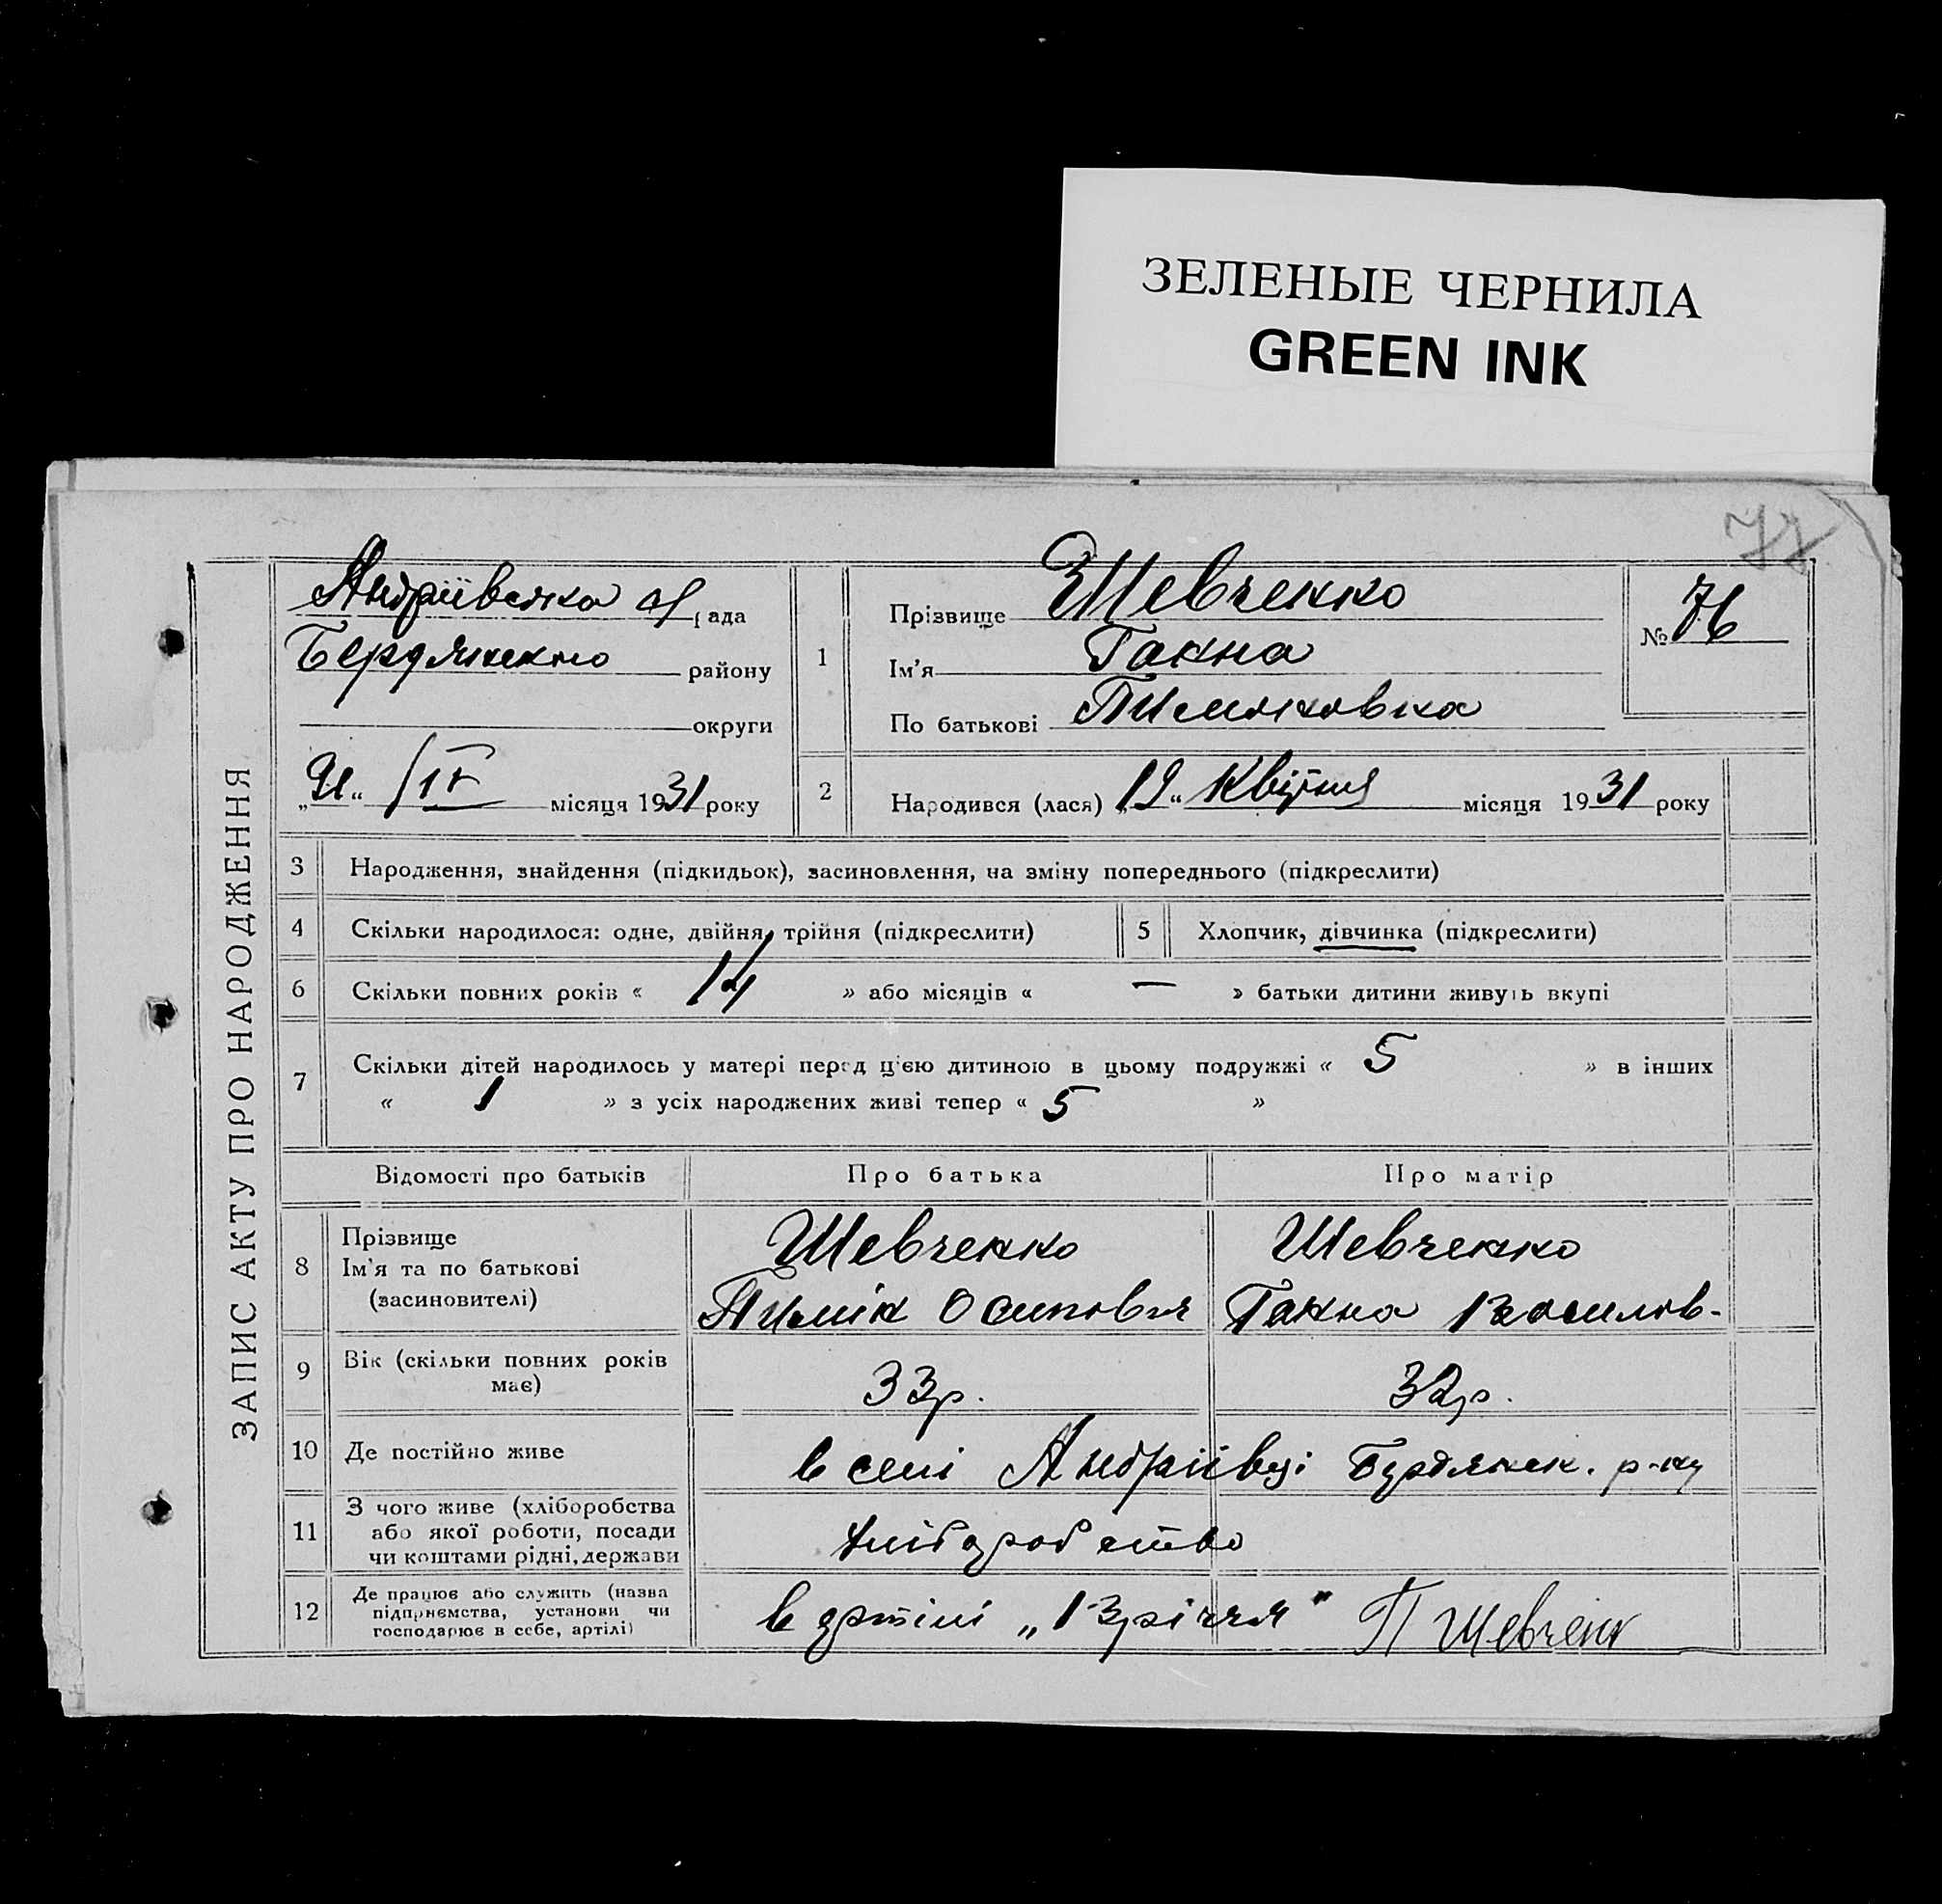 ЗЕЛЕНЫЕ ЧЕРНИЛА
GREEN INK
77
ЗАПИС АКТУ ПРО НАРОДЖЕННЯ
Андріївська с/рада
Бердянського району
округи
„21“ /IV місяця 1931 року
1
Прізвище Шевченко
Ім'я Ганна
По батькові Пилиповна
№ 76
2
Народився (лася) „19“ Квітня місяця 1931 року
3 Народження, знайдення (підкидьок), засиновлення, на зміну попереднього (підкреслити)
4 Скільки народилося: одне, двійня, трійня (підкреслити)
5 Хлопчик, дівчинка (підкреслити)
6 Скільки повних років « 14 » або місяців « — » батьки дитини живуть вкупі
7 Скільки дітей народилось у матері перед цією дитиною в цьому подружжі « 5 » в інших
« 1 » з усіх народжених живі тепер « 5 »
Відомості про батьків Про батька Про матір
8 Прізвище
Ім'я та по батькові
(засиновителі)
Шевченко
Осипович
Шевченко
Ганна Василов-
9 Вік (скільки повних років має)
33 р.
32 р.
10 Де постійно живе
в селі Андріївці Бердянськ. р-ну
11 З чого живе (хліборобства або якої роботи, посади чи коштами рідні, держави
хліборобство
12 Де працює або служить (назва підприємства, установи чи господарює в себе, артілі)
в артілі „13 річчя"
П Шевченк